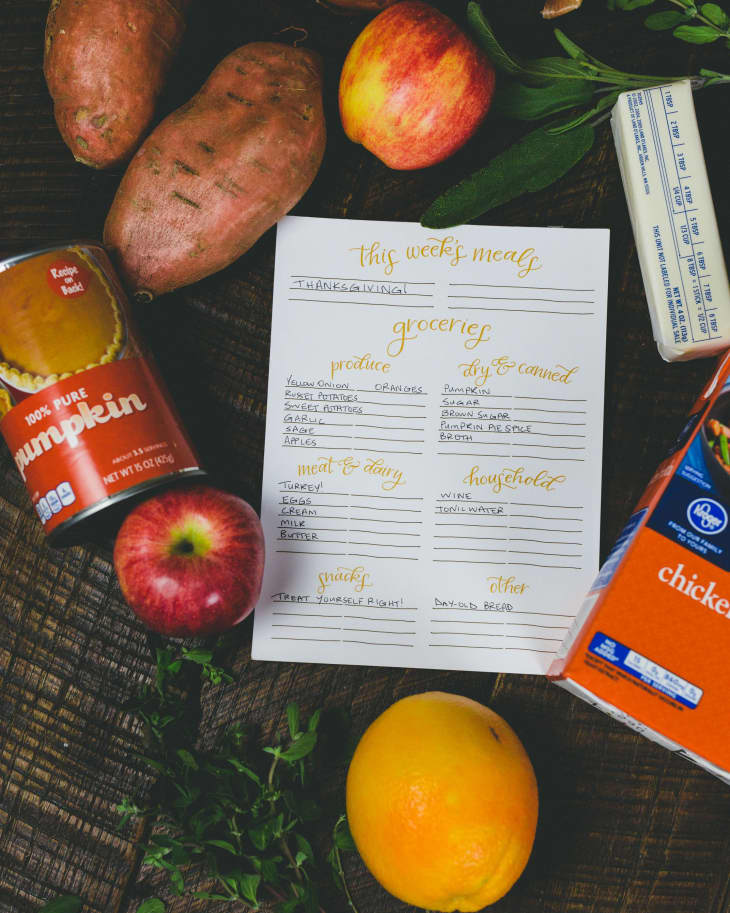 this week's meals
THANKSGIVING!
groceries
produce
YELLOW ONION ORANGES
RUSSET POTATOES
SWEET POTATOES
GARLIC
SAGE
APPLES
dry & canned
PUMPKIN
SUGAR
BROWN SUGAR
PUMPKIN PIE SPICE
BROTH
meat & dairy
TURKEY!
EGGS
CREAM
MILK
BUTTER
household
WINE
TONIC WATER
snacks
TREAT YOURSELF RIGHT!
other
DAY-OLD BREAD
Recipe
on
Back!
100% PURE
pumpkin
ABOUT 3.5 SERVINGS
NET WT 15 OZ (425g)
1 TBSP 2 TBSP 3 TBSP 4 TBSP 5 TBSP 6 TBSP 7 TBSP 8 TBSP
1/4 CUP 1/3 CUP
= 1 STICK = 1/2 CUP
THIS UNIT NOT LABELED FOR INDIVIDUAL SALE
NET WT. 4 OZ (113g)
Kroger
FROM OUR FAMILY
TO YOURS
chicke
NO
MSG
ADDED*
PER SERVING